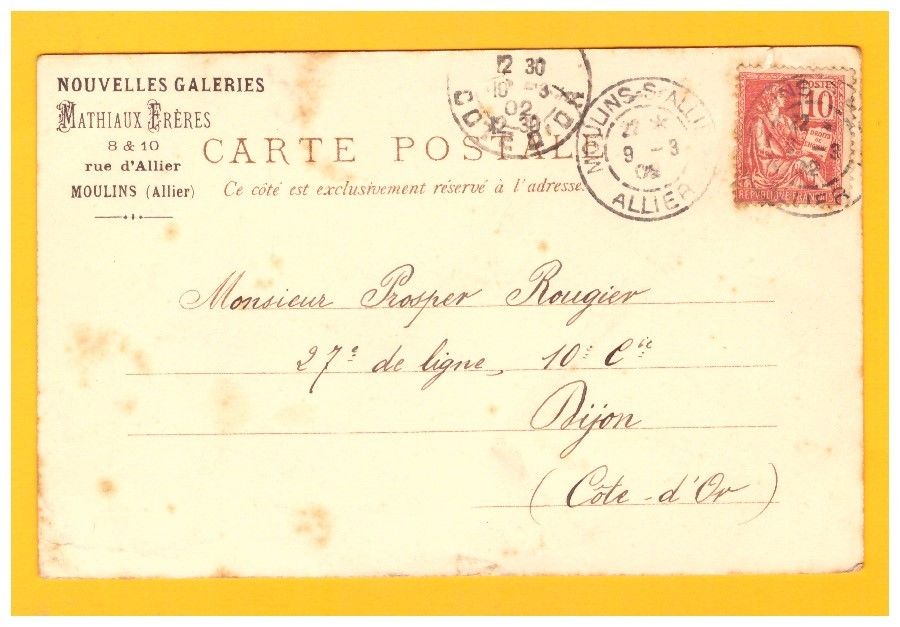 NOUVELLES GALERIES
MATHIAUX FRÈRES
8 & 10
rue d'Allier
MOULINS (Allier)
CARTE POSTALE
Ce côté est exclusivement réservé à l'adresse.
12 30
10 -3
02
12 30
COTE D'OR
MOULINS-S-ALLIER
9 -3
02
ALLIER
POSTES
10
REPUBLIQUE FRANÇAISE
Monsieur Prosper Rougier
27e de ligne, 10e Cie
Dijon
(Côte-d'Or)